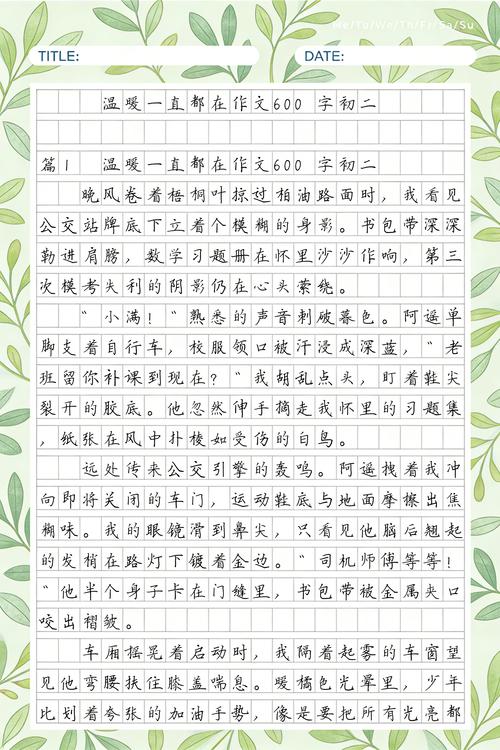 Mo/Tu/We/Th/Fr/Sa/Su
TITLE: DATE:
温暖一直都在作文600 字初二
篇1 温暖一直都在作文600 字初二
晚风卷着梧桐叶掠过柏油路面时，我看见
公交站牌底下立着个模糊的身影。书包带深深
勒进肩膀，数学习题册在怀里沙沙作响，第三
次模考失利的阴影仍在心头萦绕。
"小满！"熟悉的声音刺破暮色。阿遥单
脚支着自行车，校服领口被汗浸成深蓝，"老
班留你补课到现在？"我胡乱点头，盯着鞋尖
裂开的胶底。他忽然伸手摘走我怀里的习题集
，纸张在风中扑棱如受伤的白鸟。
远处传来公交引擎的轰鸣。阿遥拽着我冲
向即将关闭的车门，运动鞋底与地面摩擦出焦
糊味。我的眼镜滑到鼻尖，只看见他脑后翘起
的发梢在路灯下镀着金边。"司机师傅等等！
"他半个身子卡在门缝里，书包带被金属夹口
咬出褶皱。
车厢摇晃着启动时，我隔着起雾的车窗望
见他弯腰扶住膝盖喘息。暖橘色光晕里，少年
比划着夸张的加油手势，像是要把所有光亮都